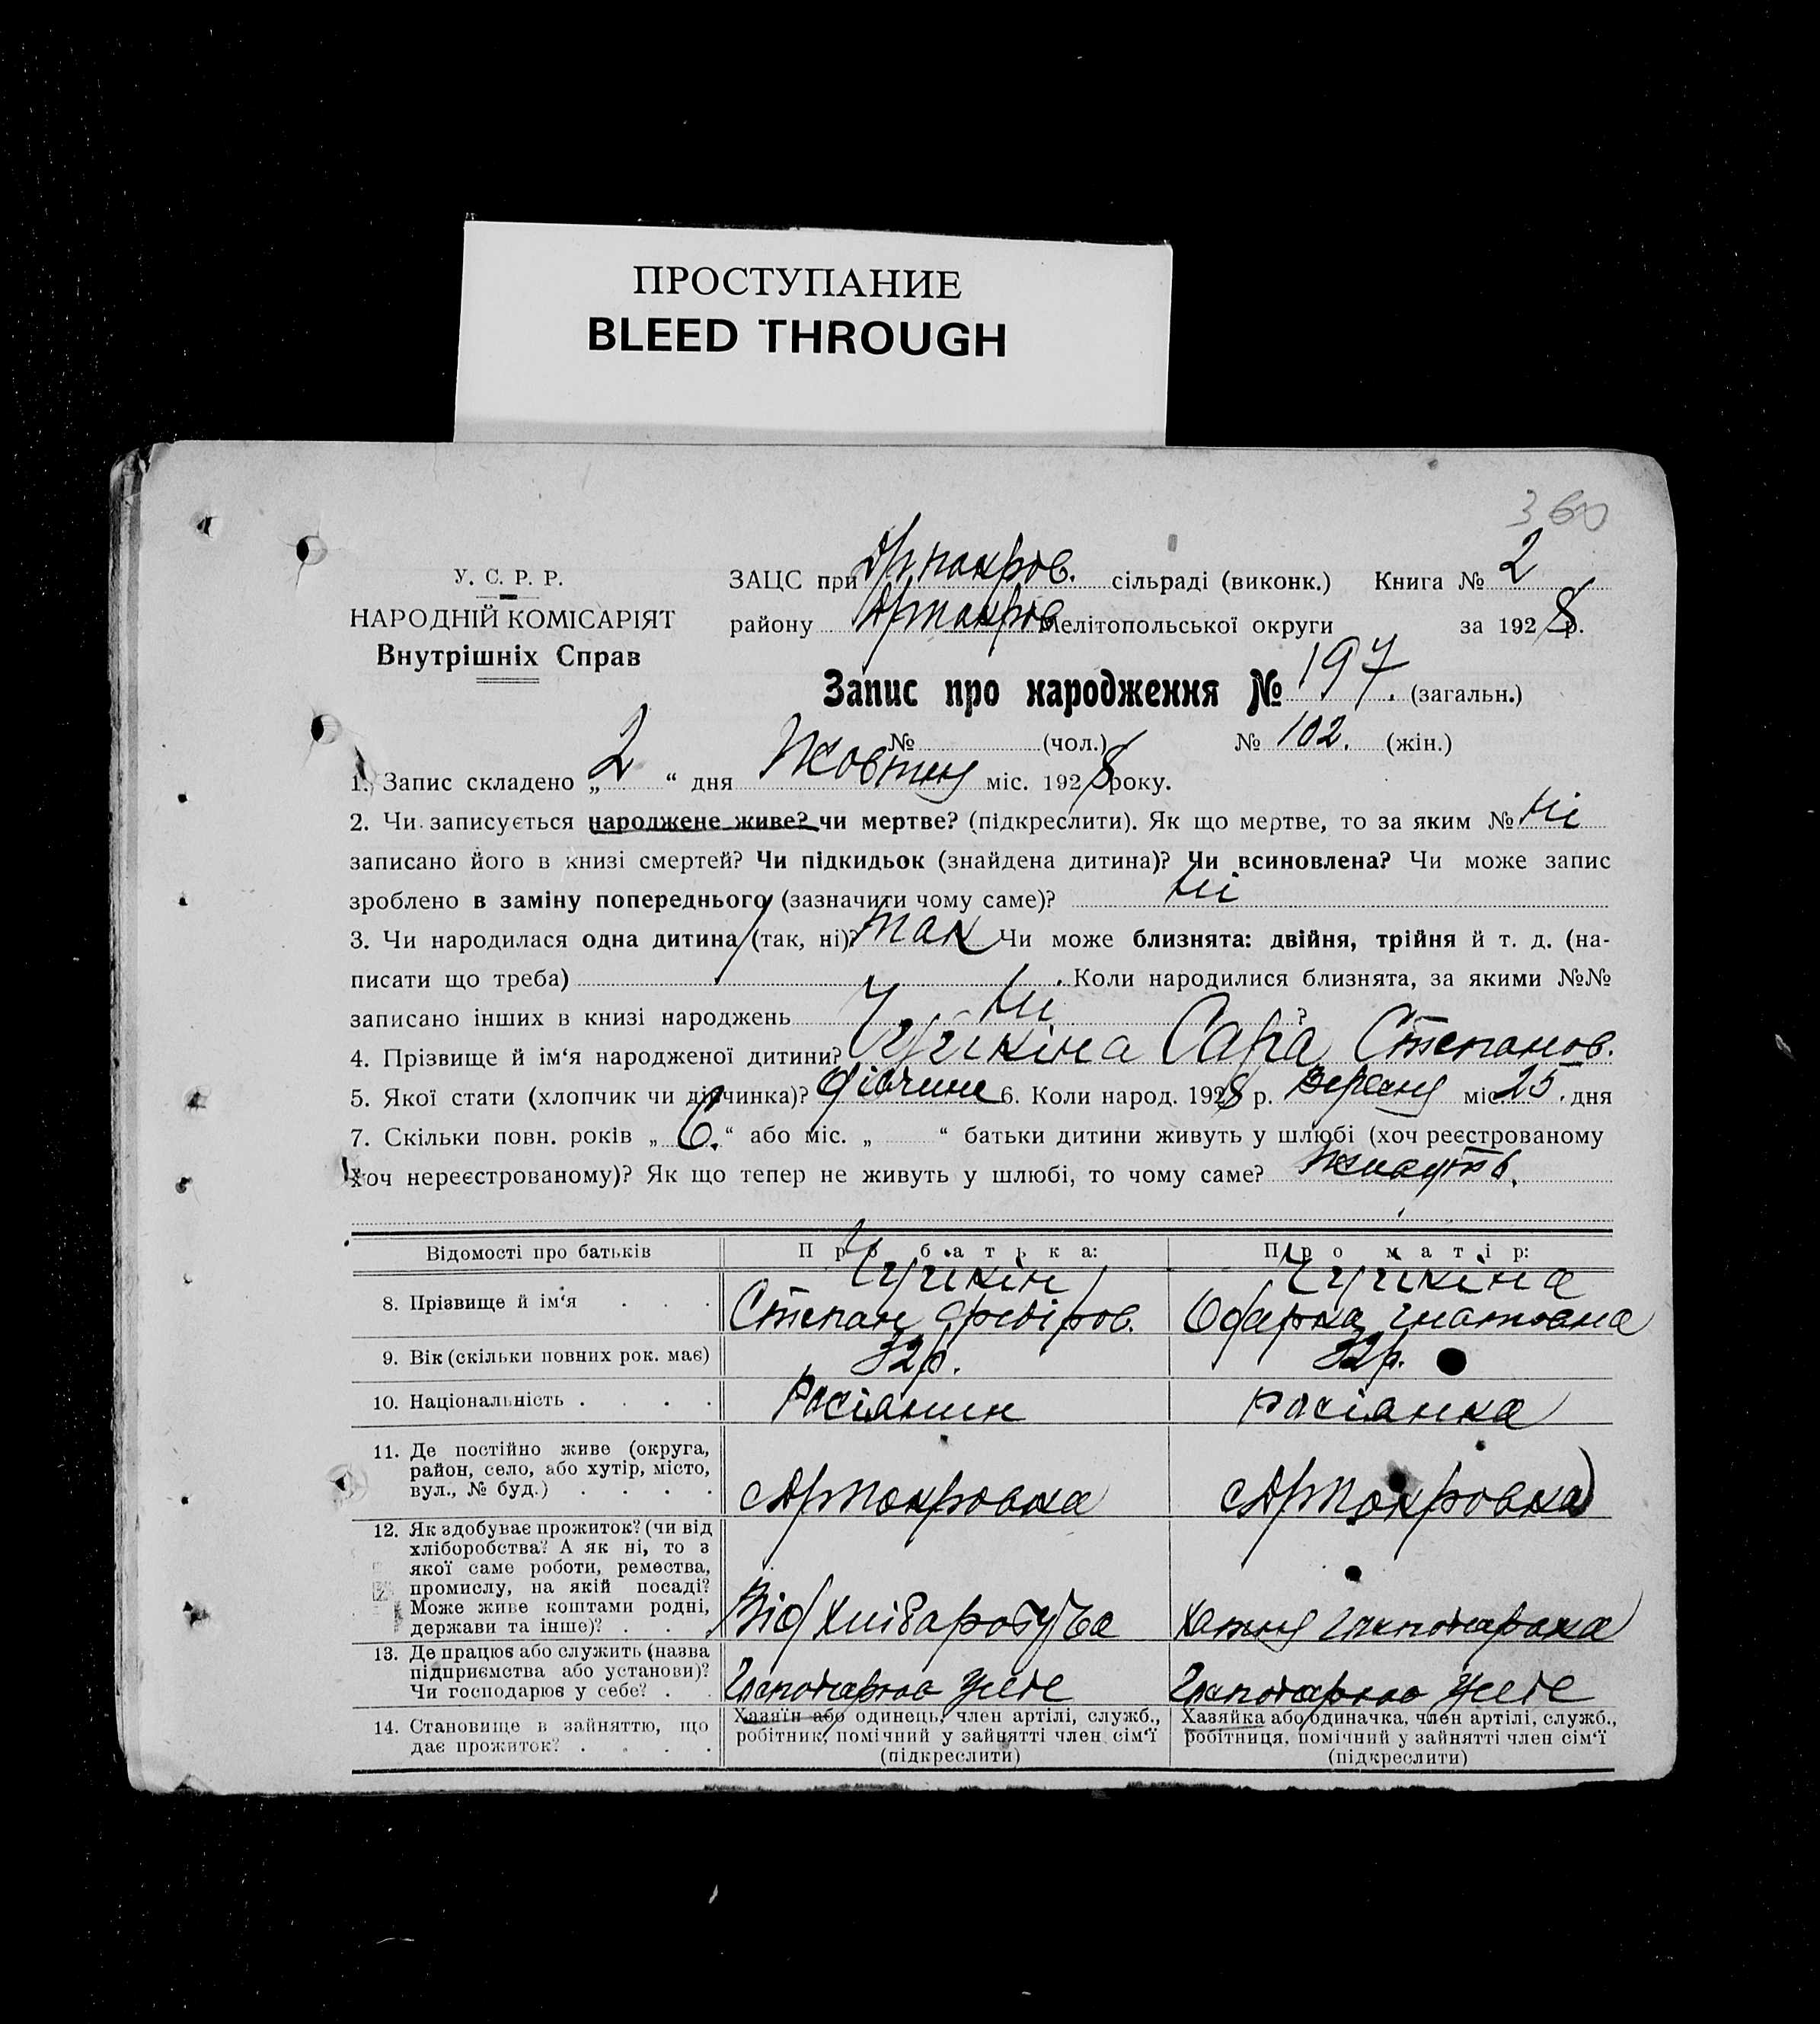 ПРОСТУПАНИЕ
BLEED THROUGH
360
У. С. Р. Р.
НАРОДНІЙ КОМІСАРІЯТ
Внутрішніх Справ
ЗАЦС при Ярпокров. сільраді (виконк.) Книга № 2
району Мелітопольської округи за 1928 р.
Запис про народження № 197. (загальн.)
№ (чол.) № 102. (жін.)
1. Запис складено „2“ дня Жовтня міс. 1928 року.
2. Чи записується народжене живе? чи мертве? (підкреслити). Як що мертве, то за яким № ні
записано його в книзі смертей? Чи підкидьок (знайдена дитина)? Чи всиновлена? Чи може запис
зроблено в заміну попереднього (зазначити чому саме)? ні
3. Чи народилася одна дитина (так, ні)? так Чи може близнята: двійня, трійня й т. д. (на-
писати що треба) . Коли народилися близнята, за якими №№
записано інших в книзі народжень ні ?
4. Прізвище й ім‘я народженої дитини? Степанов.
5. Якої стати (хлопчик чи дівчинка)? дівчине 6. Коли народ. 1928 р. Вересня міс. 25. дня
7. Скільки повн. років „6.“ або міс. „ “ батьки дитини живуть у шлюбі (хоч реєстрованому
хоч нереєстрованому)? Як що тепер не живуть у шлюбі, то чому саме? живуть.
Відомості про батьків Про батька: Про матір:
8. Прізвище й ім‘я . . . Степан Федіров. Одарка Гнатовна
9. Вік (скільки повних рок. має) 32р. 32р.
10. Національність . . . . Росіянин росіянка
11. Де постійно живе (округа,
район, село, або хутір, місто,
вул., № буд.) . . . .
12. Як здобуває прожиток? (чи від
хліборобства? А як ні, то з
якої саме роботи, ремества,
промислу, на якій посаді?
Може живе коштами родні,
держави та інше)? . . . Від
13. Де працює або служить (назва
підприємства або установи)?
Чи господарює у себе? . .
14. Становище в зайняттю, що
дає прожиток? . . . .
Хазяїн або одинець, член артілі, служб.,
робітник, помічний у зайнятті член сім‘ї
(підкреслити)
Хазяйка або одиначка, член артілі, служб.,
робітниця, помічний у зайнятті член сім‘ї
(підкреслити)